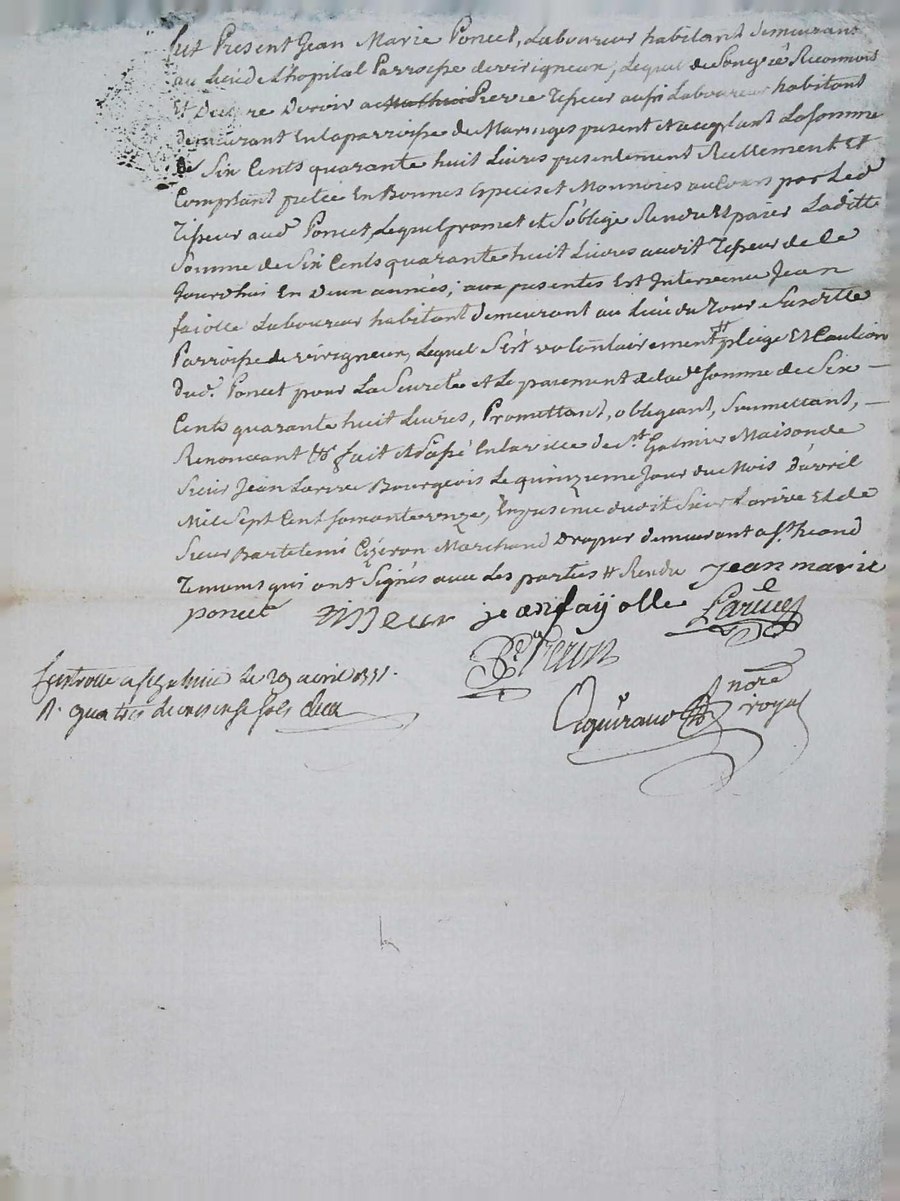 fut Present Jean Marie Poncet, Laboureur habitant demeurant
au Lieu de L'hopital Parroisse de virigneux, Lequel de son gré Reconnoit
Et Declare Devoir a Pierre Tisseur aussi Laboureur habitant
demeurant En la parroisse de Maringes present et acceptant La somme
de Six Cents quarante huit Livres presentement Reellement Et
Comptant pretée En Bonnes Especes et Monnoies au Cours par Led
Tisseur aud Poncet, Lequel promet et s'oblige Rendre Et paier Laditte
Somme de Six Cents quarante huit Livres audit Tisseur de Ce
Jourdhui En Deux années; aux presentes Est Intervenu Jean
faiolle Laboureur habitant demeurant au Lieu du
Parroisse de virigneux, Lequel S'est volontairement # pleige Et Caution
Dud. Poncet pour La Seureté et Le paiement de lade Somme de Six —
Cents quarante huit Livres, Promettant, obligeant, Soumettant, —
Renonceant &a fait et Passé En la ville de St Galmier Maison de
Sieur Jean Larive Bourgeois Le quinzieme Jour du Mois D'avril
Mil Sept Cent soixante onze, En presence dudit Sieur Larive Et de
Sieur Bartelemi Cizeron Marchand Drapier demeurant a St heand
Temoins qui ont Signés avec Les parties # Rendu Jean marie
poncet tisseur jean fayolle Larive
Cizeron
Aguiraud Nore royal
a St galmier le 29 avril 1771.
R. quatre livres onze sols